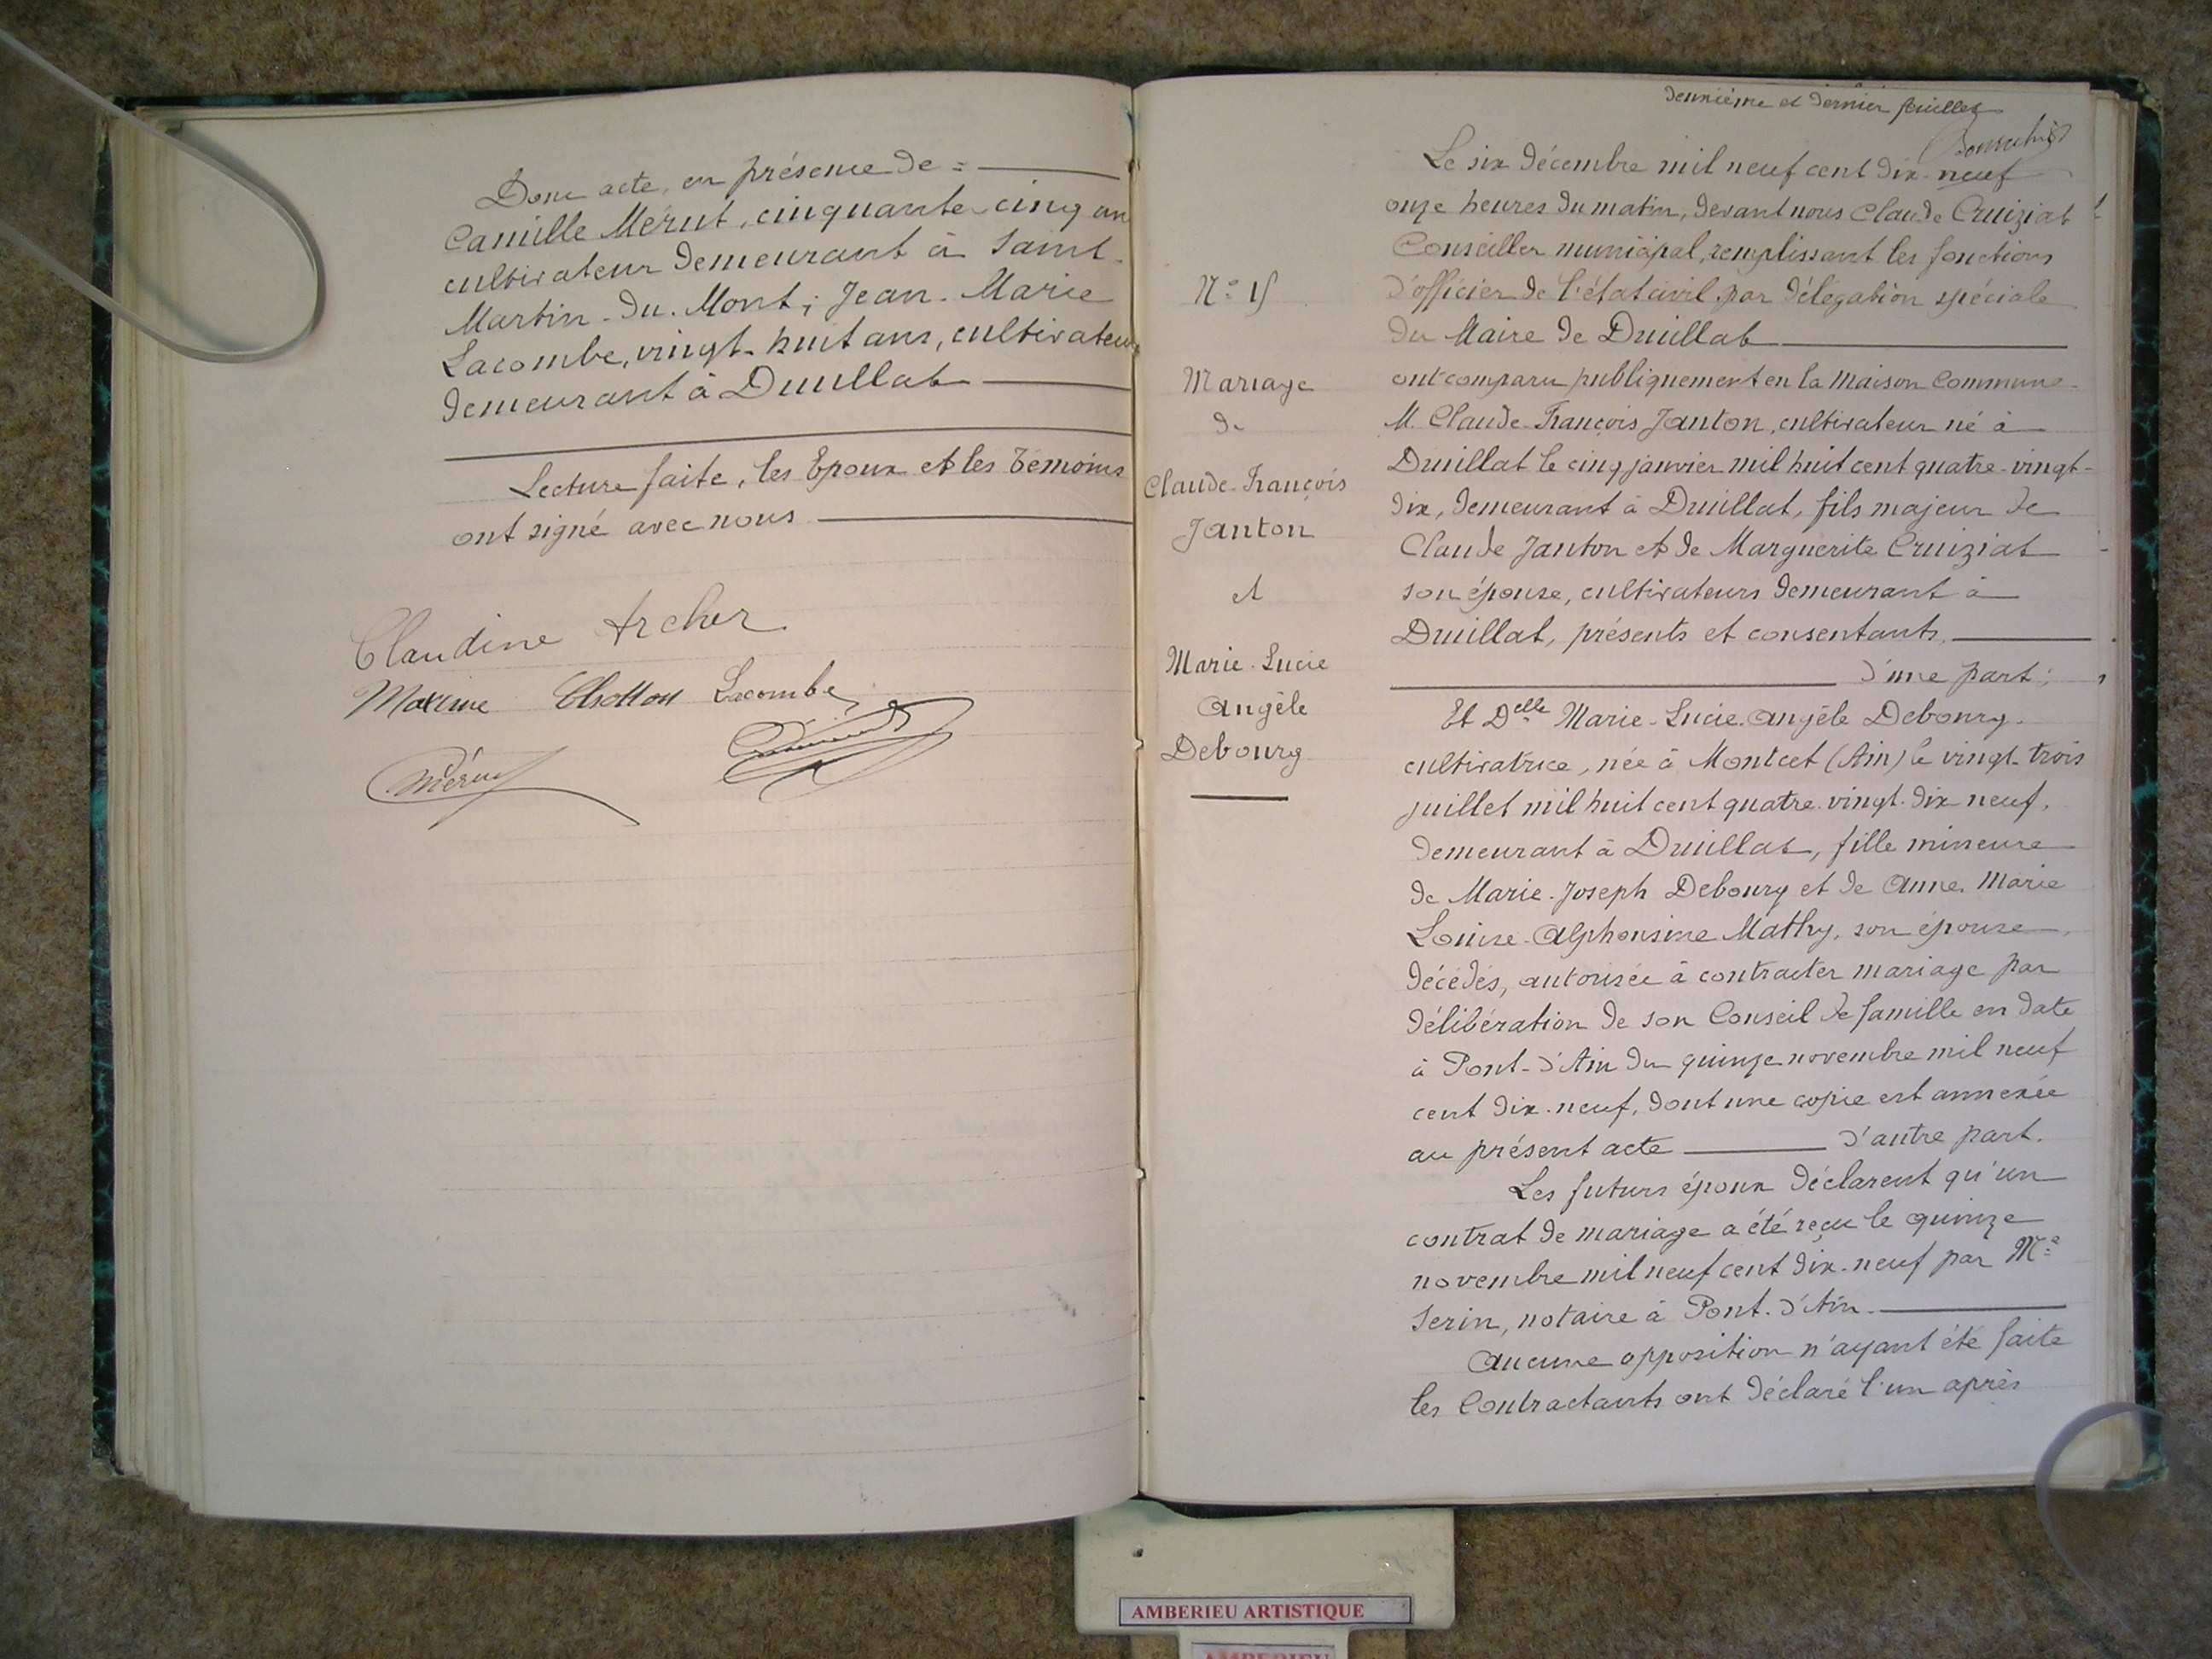 Donc acte, en présence de =
Camille Mérut, cinquante-cinq an
cultivateur demeurant à Saint-
Martin-du-Mont; Jean-Marie
Lacombe, vingt-huit ans, cultivateur
demeurant à Druillat
Lecture faite, les Epoux et les Témoins
ont signé avec nous
Claudine Archer
Maxime Chollou Lacombe
Mérut
deuxième et dernier feuillet
N° 15
Mariage
de
Claude-François
Janton
et
Marie-Lucie
Angèle
Debourg
Le six décembre mil neuf cent dix-neuf
onze heures du matin, devant nous Claude Cruiziat
Conseiller municipal, remplissant les fonctions
d'officier de l'état civil par délégation spéciale
du Maire de Druillat
ont comparu publiquement en la Maison Commune
M. Claude-François Janton, cultivateur né à
Druillat le cinq janvier mil huit cent quatre-vingt-
dix, demeurant à Druillat, fils majeur de
Claude Janton et de Marguerite Cruiziat
son épouse, cultivateurs demeurant à
Druillat, présents et consentants,
d'une part;
Et Delle Marie-Lucie-Angèle Debourg
cultivatrice, née à Montcet (Ain) le vingt-trois
juillet mil huit cent quatre-vingt-dix neuf,
demeurant à Druillat, fille mineure
de Marie-Joseph Debourg et de Anne Marie
Louise-Alphonsine Mathy, son épouse,
décédés, autorisée à contracter mariage par
délibération de son Conseil de famille en date
à Pont-d'Ain du quinze novembre mil neuf
cent dix-neuf, dont une copie est annexée
au présent acte d'autre part.
Les futurs époux déclarent qu'un
contrat de mariage a été reçu le quinze
novembre mil neuf cent dix-neuf par Me
Serin, notaire à Pont-d'Ain
Aucune opposition n'ayant été faite
les Contractants ont déclaré l'un après
AMBERIEU ARTISTIQUE
AMBERIEU